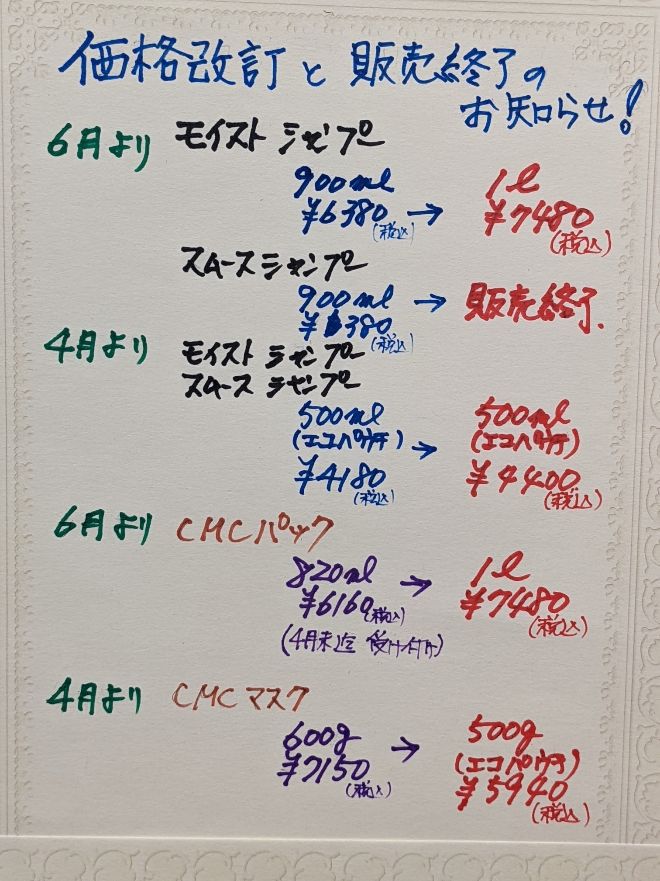 価格改訂と販売終了の
お知らせ!
6月より モイスト シャンプー
900ml → 1l
¥6380(税込) ¥7480(税込)
スムースシャンプー
900ml → 販売終了.
¥6380(税込)
4月より モイスト シャンプー
スムース シャンプー
500ml 500ml
(エコパウチ) → (エコパウチ)
¥4180(税込) ¥4400(税込)
6月より CMCパック
820ml → 1l
¥6160(税込) ¥7480(税込)
(4月末迄 受け付け)
4月より CMCマスク
600g → 500g
¥7150(税込) (エコパウチ)
¥5940(税込)